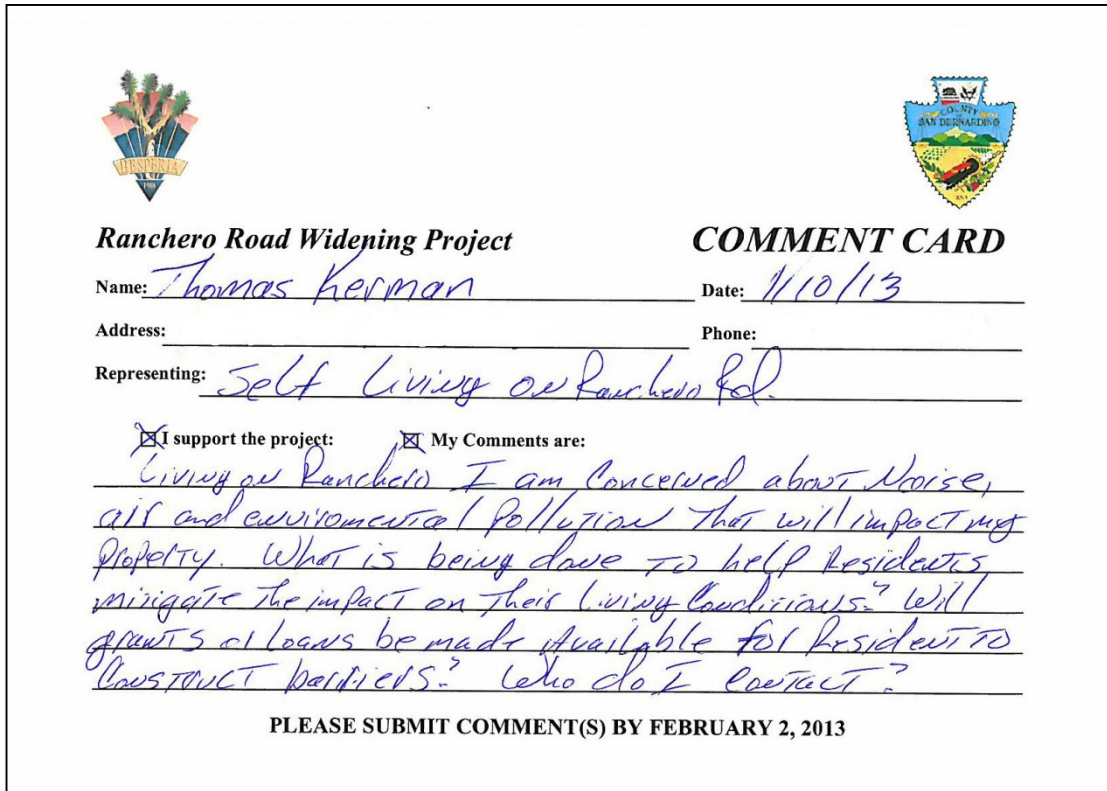 HESPERIA
1988
COUNTY
SAN BERNARDINO
Ranchero Road Widening Project
COMMENT CARD
Name: Thomas Kerman
Date: 1/10/13
Address:
Phone:
Representing: Self Living on Ranchero Rd.
I support the project:
My Comments are:
Living on Ranchero I am Concerned about Noise,
air and enviromental Pollution That will impact my
Property. What is being done To help Residents
mitigate The impact on Their Living Conditions? Will
grants or Loans be made Available for Resident To
Construct barriers? Who do I Contact?
PLEASE SUBMIT COMMENT(S) BY FEBRUARY 2, 2013